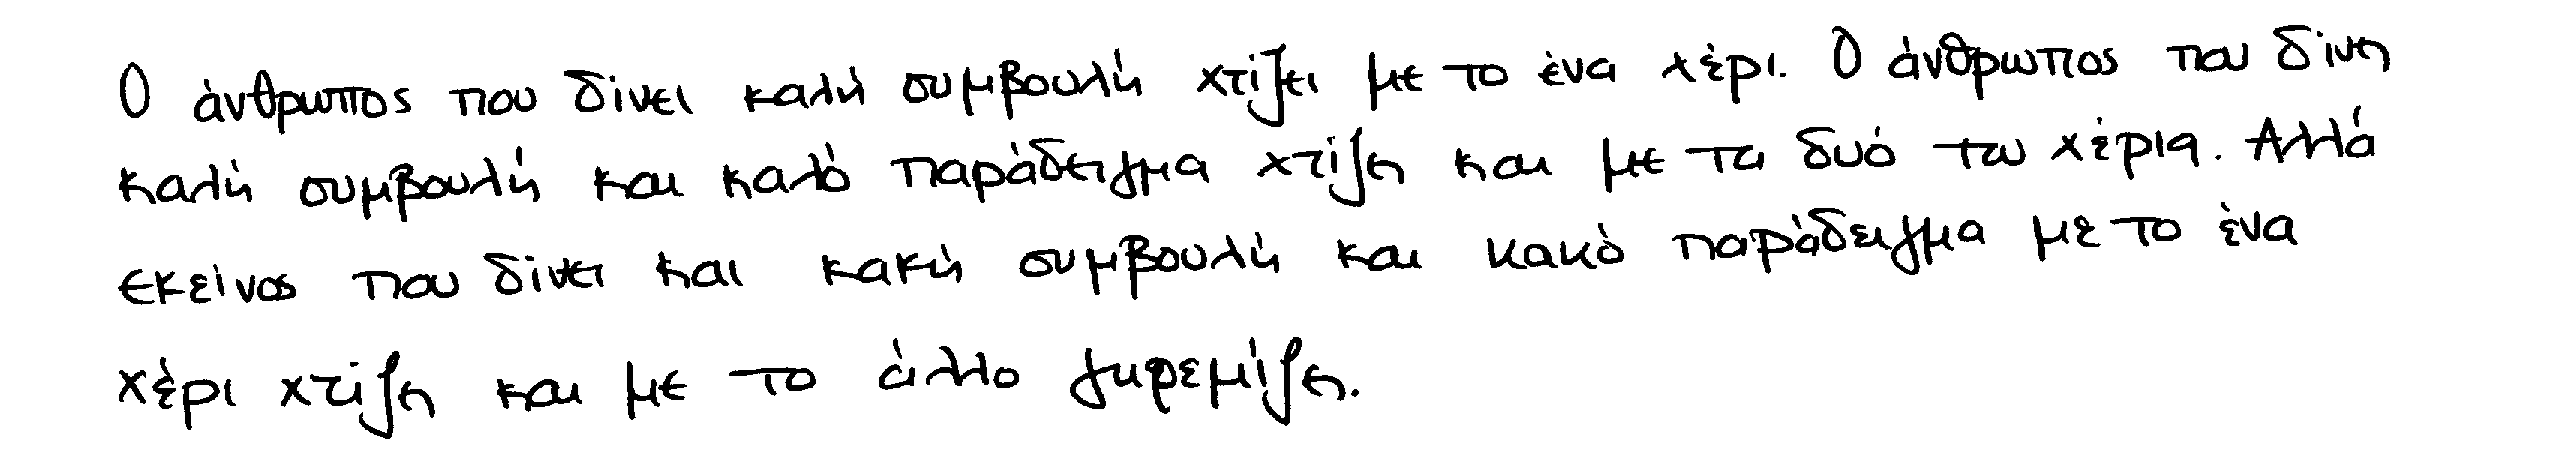 Ο άνθρωπος που δίνει καλή συμβουλή χτίζει με το ένα χέρι. Ο άνθρωπος που δίνει
καλή συμβουλή και καλό παράδειγμα χτίζει και με τα δυό του χέρια. Αλλά
εκείνος που δίνει και κακή συμβουλή και κακό παράδειγμα με το ένα
χέρι χτίζει και με το άλλο γκρεμίζει.